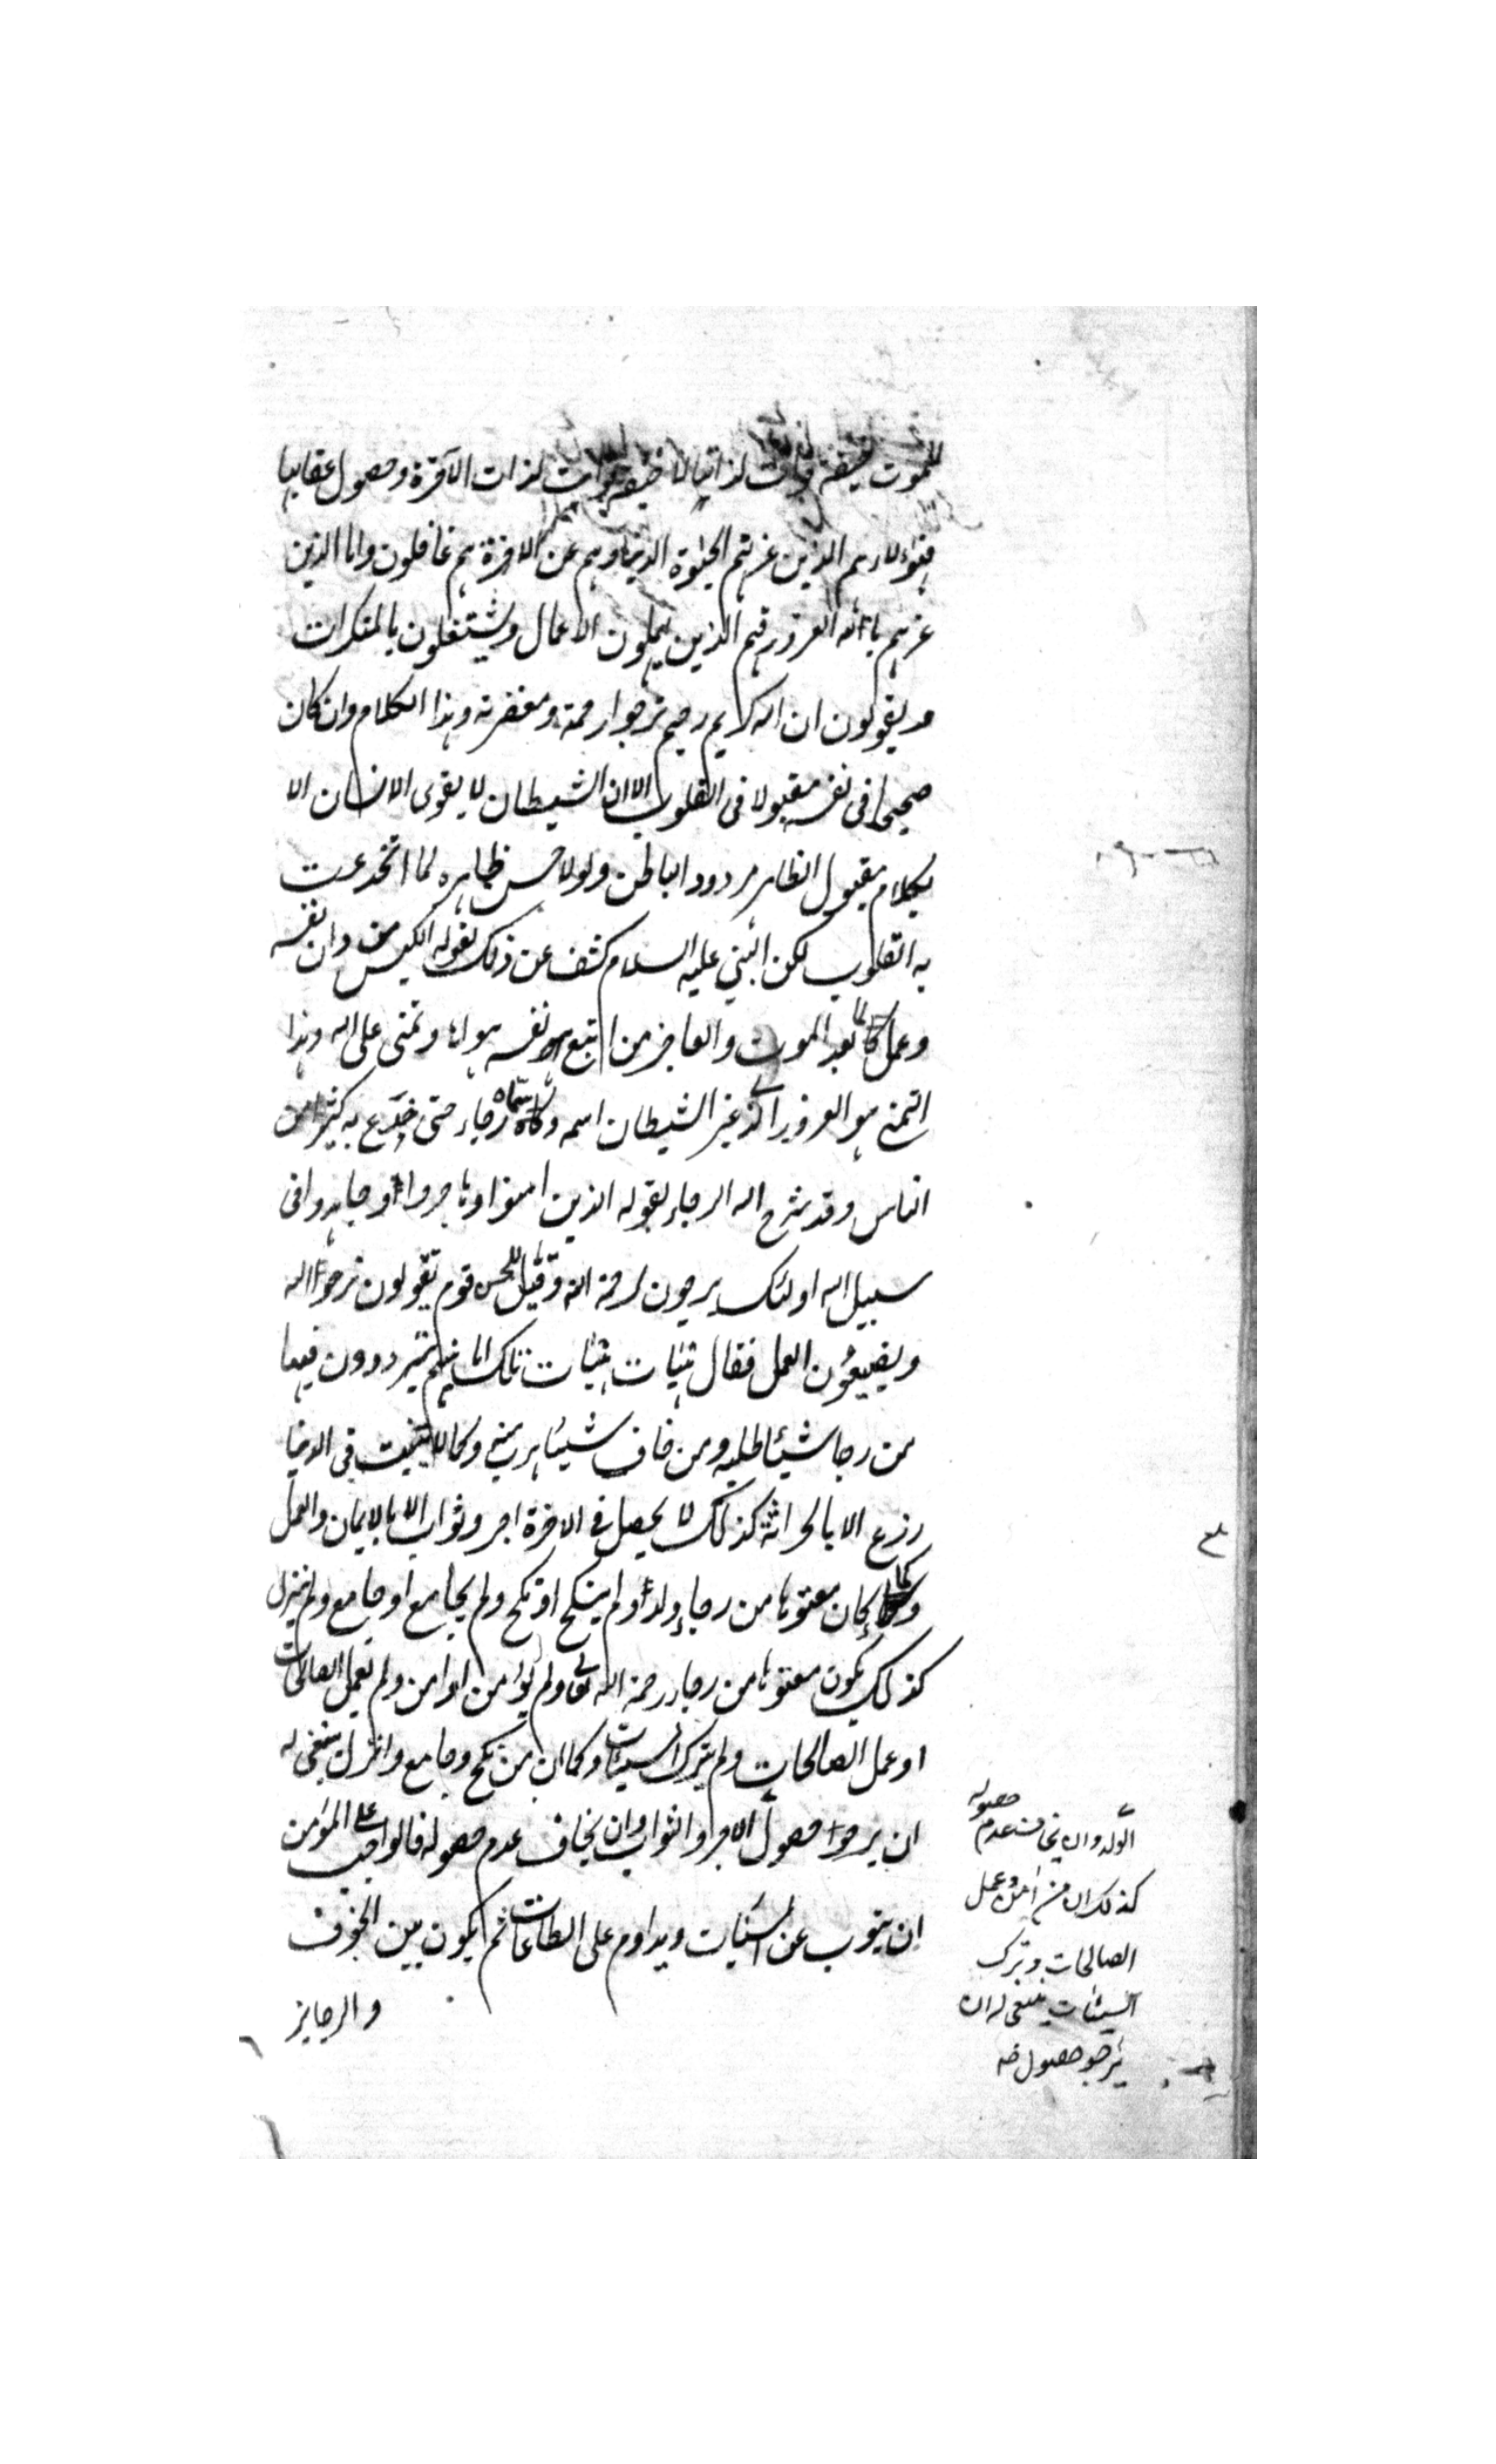 للموت خيفة فوات لذاتها لا خيفة فوات لذات الآخرة وحصول عقابها
فهؤلاء هم الذين غرتهم الحيوة الدنيا وهم عن الاخرة هم غافلون واما الذين
غرهم بالله الغرور فهم الذين يهملون الاعمال ويشتغلون بالمنكرات
ويقولون ان الله كريم رحيم نرجوا رحمته ومغفرته وهذا الكلام وان كان
صحيحا فى نفسه مقبولا فى القلوب الا ان الشيطان لا يقوى الانسان الا
بكلام مقبول الظاهر مردود الباطن ولولا حسن ظاهره لما انخدعت
به القلوب لكن النبي عليه السلام كشف عن ذلك بقوله الكيس من دان نفسه
وعمل لما بعد الموت والعاجز من اتبع نفسه هواها وتمنى على الله وهذا
التمنى هو الغرور الذى غير الشيطان اسمه وسماه رجاء حتى خدع به كثيرا من
الناس وقد شرح الله الرجاء بقوله الذين امنوا وهاجروا وجاهدوا فى
سبيل الله اولئك يرجون رحمة الله وقيل للحسن قوم يقولون نرجوا الله
ويضيعون العمل فقال هيهات هيهات تلك امانيهم يترددون فيها
من رجا شيئا طلبه ومن خاف شيئا هرب منه وكما لا ينبت فى الدنيا
زرع الا بالحراثة كذلك لا يحصل فى الاخرة اجر وثواب الا بالايمان والعمل
وكما كان معتوها من رجاء ولدا ولم ينكح او نكح ولم يجامع او جامع ولم ينزل
كذلك يكون معتوها من رجاء رحمة الله تعالى ولم يؤمن او امن ولم يعمل الصالحات
او عمل الصالحات ولم يترك السيئات وكما ان من نكح وجامع وانزل ينبغى له
ان يرجوا حصول الاجر والثواب وان يخاف عدم حصوله فالواجب على المؤمن
ان يتوب عن السيئات ويداوم على الطاعات ثم يكون بين الخوف
والرجاء
الولد وان يخاف عدم حصوله
كذلك ان من امن وعمل
الصالحات وترك
السيئات ينبغى له ان
يرجو حصول